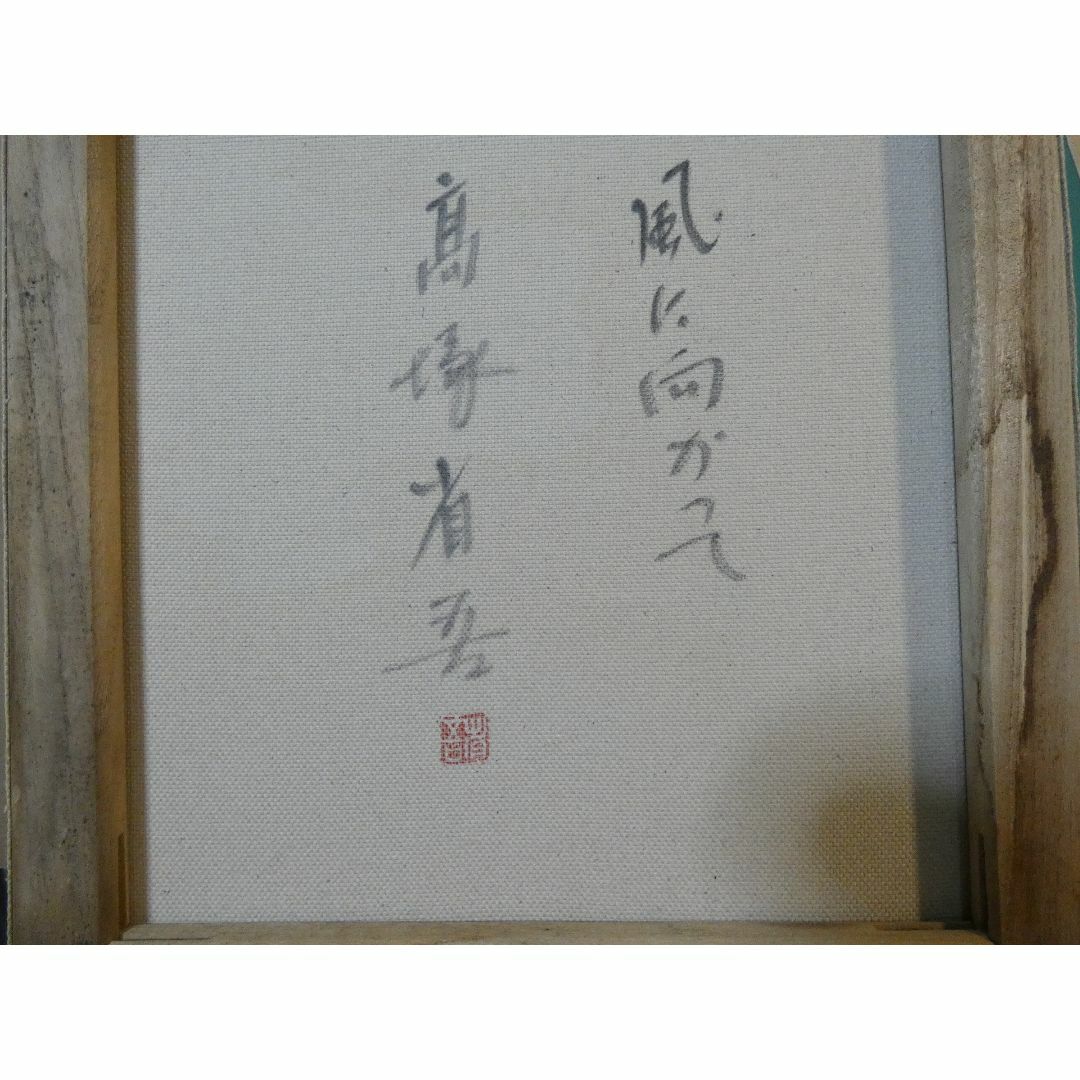 風に向かって
髙塚省吾